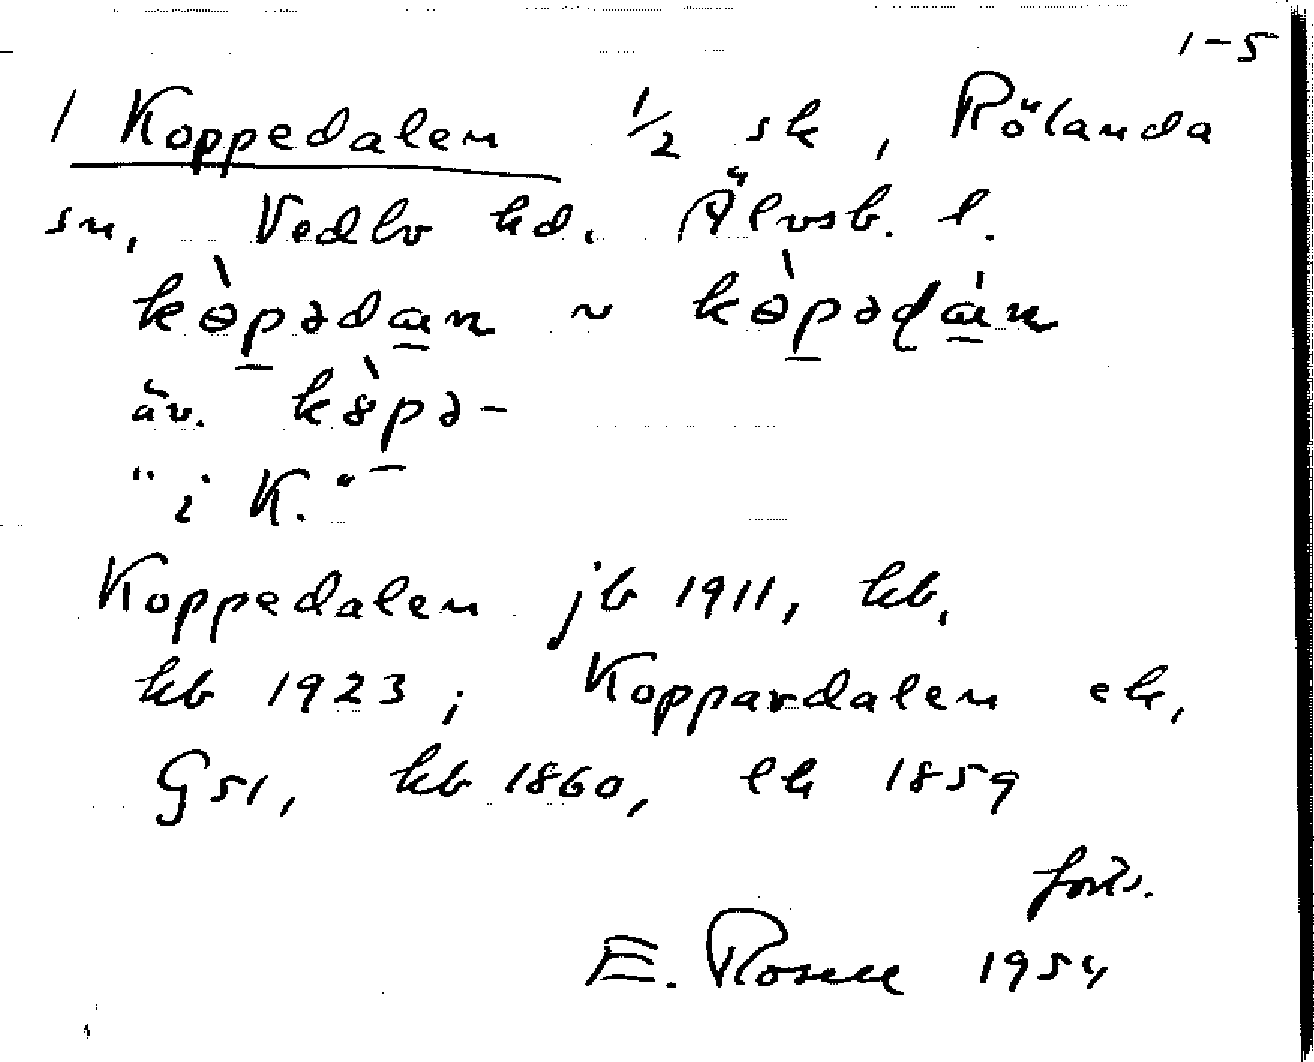 1-5
1 Koppedalen 1/2 sk, Rölanda
sn, Vedbo hd. Älvsb. l.
kɵ̀pədan ~ kɵ̀pədán
äv. kòpə-
"i K."
Koppedalen jb 1911, kb,
kb 1923; Koppardalen ek,
G51, kb 1860, ek 1859
forts.
E. Rosell 1954